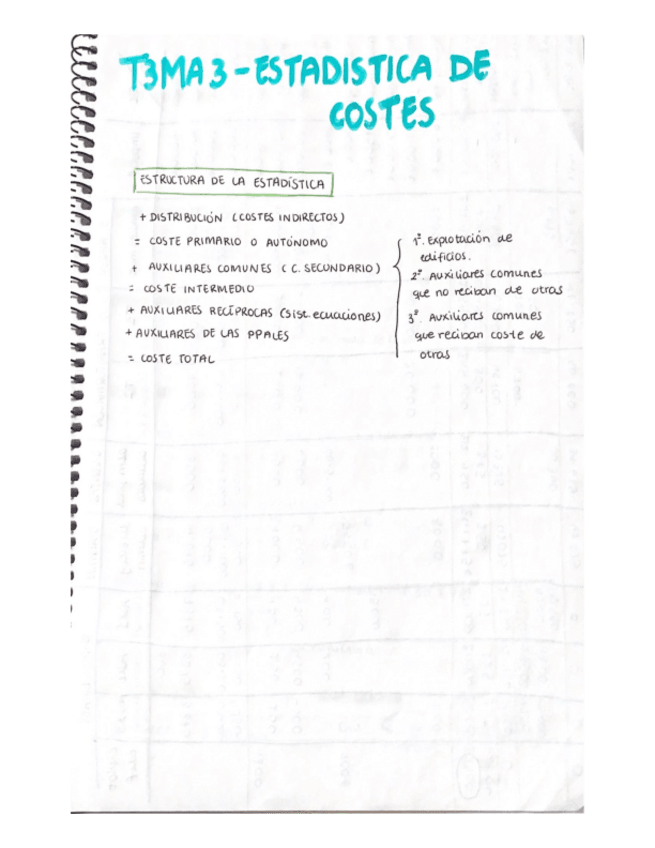 T3MA 3 - ESTADISTICA DE
COSTES
ESTRUCTURA DE LA ESTADÍSTICA
+ DISTRIBUCIÓN (COSTES INDIRECTOS)
= COSTE PRIMARIO O AUTÓNOMO
+ AUXILIARES COMUNES (C. SECUNDARIO)
= COSTE INTERMEDIO
+ AUXILIARES RECÍPROCAS (Sist. ecuaciones)
+ AUXILIARES DE LAS PPALES
= COSTE TOTAL
1º. Explotación de
edificios.
2º. Auxiliares comunes
que no reciban de otras
3º. Auxiliares comunes
que reciban coste de
otras